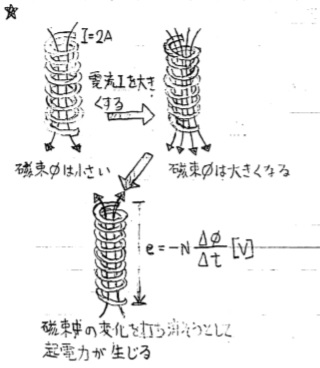 ☆
I=2A
電流Iを大き
くする
磁束φは小さい
磁束φは大きくなる
e=-N Δφ/Δt [V]
磁束φの変化を打ち消そうとして
起電力が生じる